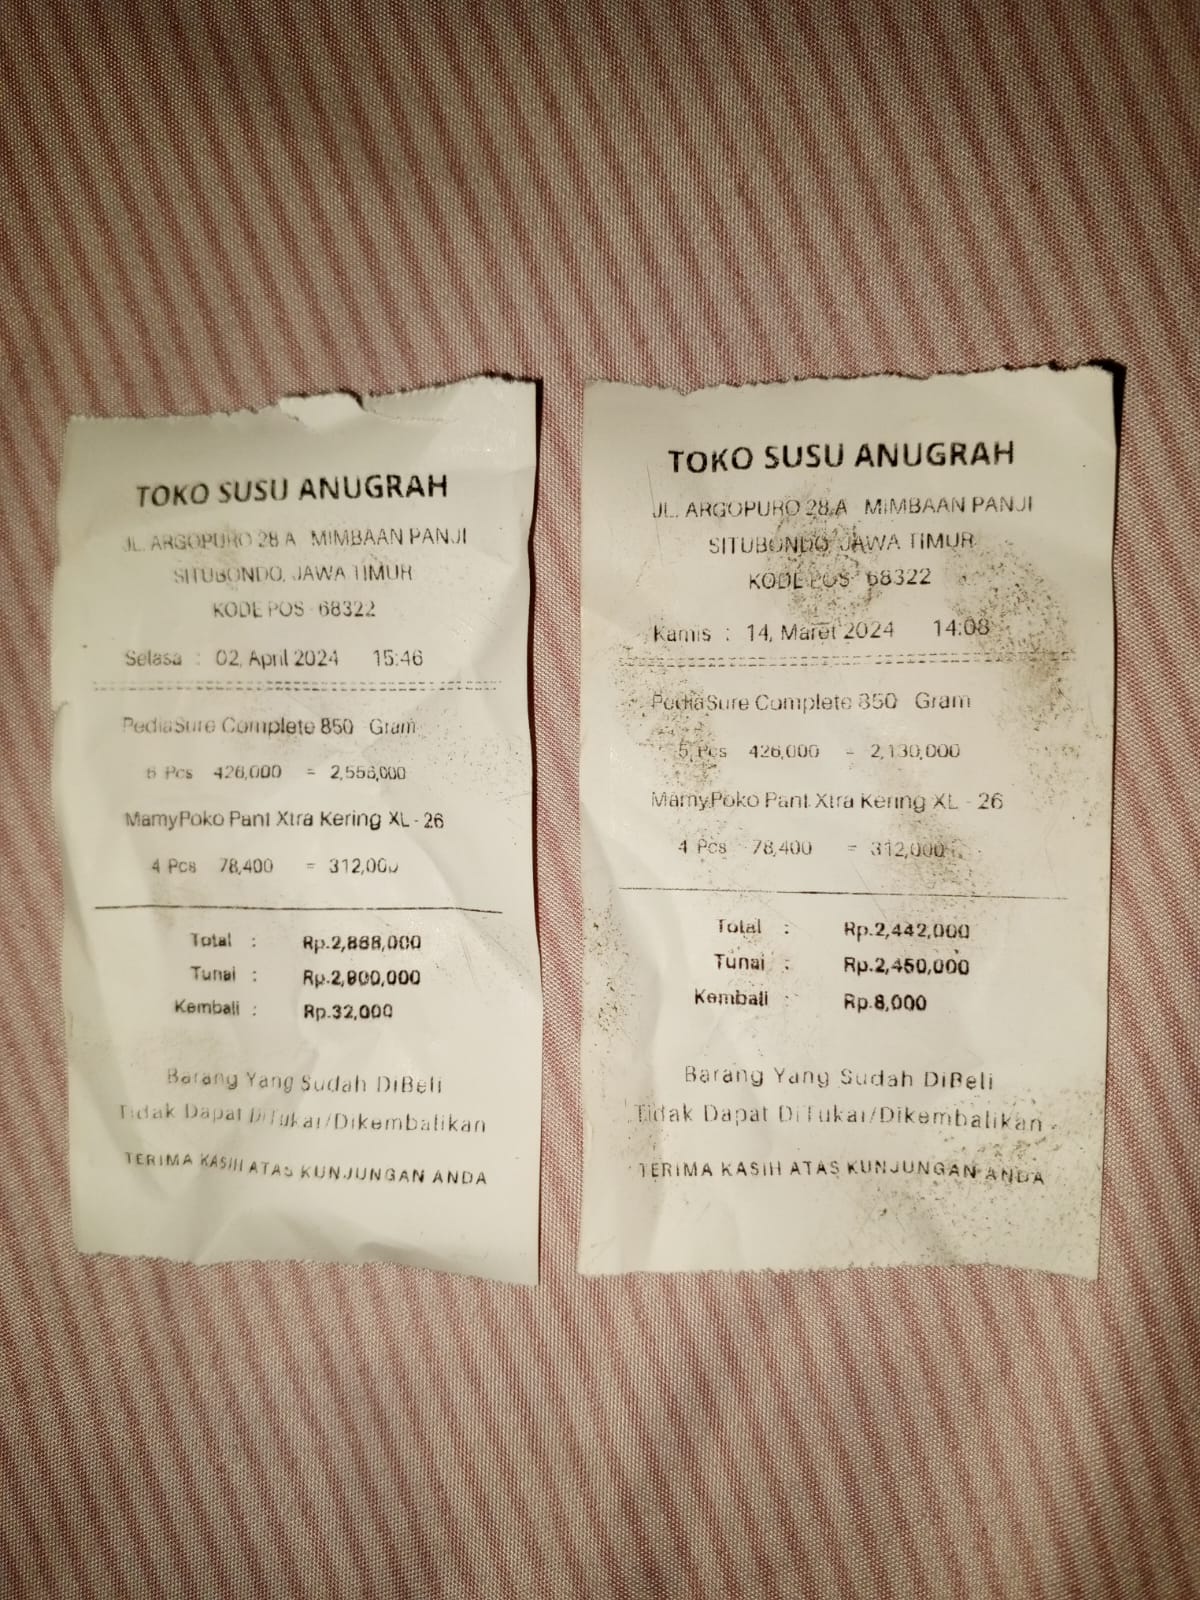 TOKO SUSU ANUGRAH
JL. ARGOPURO 28 A MIMBAAN PANJI
SITUBONDO, JAWA TIMUR
KODE POS 68322
Selasa : 02, April 2024 15:46
PediaSure Complete 850 Gram
6 Pcs 426,000 = 2,556,000
MamyPoko Pant Xtra Kering XL - 26
4 Pcs 78,400 = 312,000
Total : Rp.2,868,000
Tunai : Rp.2,900,000
Kembali : Rp.32,000
Barang Yang Sudah DiBeli
Tidak Dapat DiTukar/Dikembalikan
TERIMA KASIH ATAS KUNJUNGAN ANDA
TOKO SUSU ANUGRAH
JL. ARGOPURO 28 A MIMBAAN PANJI
SITUBONDO, JAWA TIMUR
KODE POS 68322
Kamis : 14, Maret 2024 14:08
PediaSure Complete 850 Gram
5 Pcs 426,000 = 2,130,000
MamyPoko Pant Xtra Kering XL - 26
4 Pcs 78,400 = 312,000
Total : Rp.2,442,000
Tunai : Rp.2,450,000
Kembali : Rp.8,000
Barang Yang Sudah DiBeli
Tidak Dapat DiTukar/Dikembalikan
TERIMA KASIH ATAS KUNJUNGAN ANDA